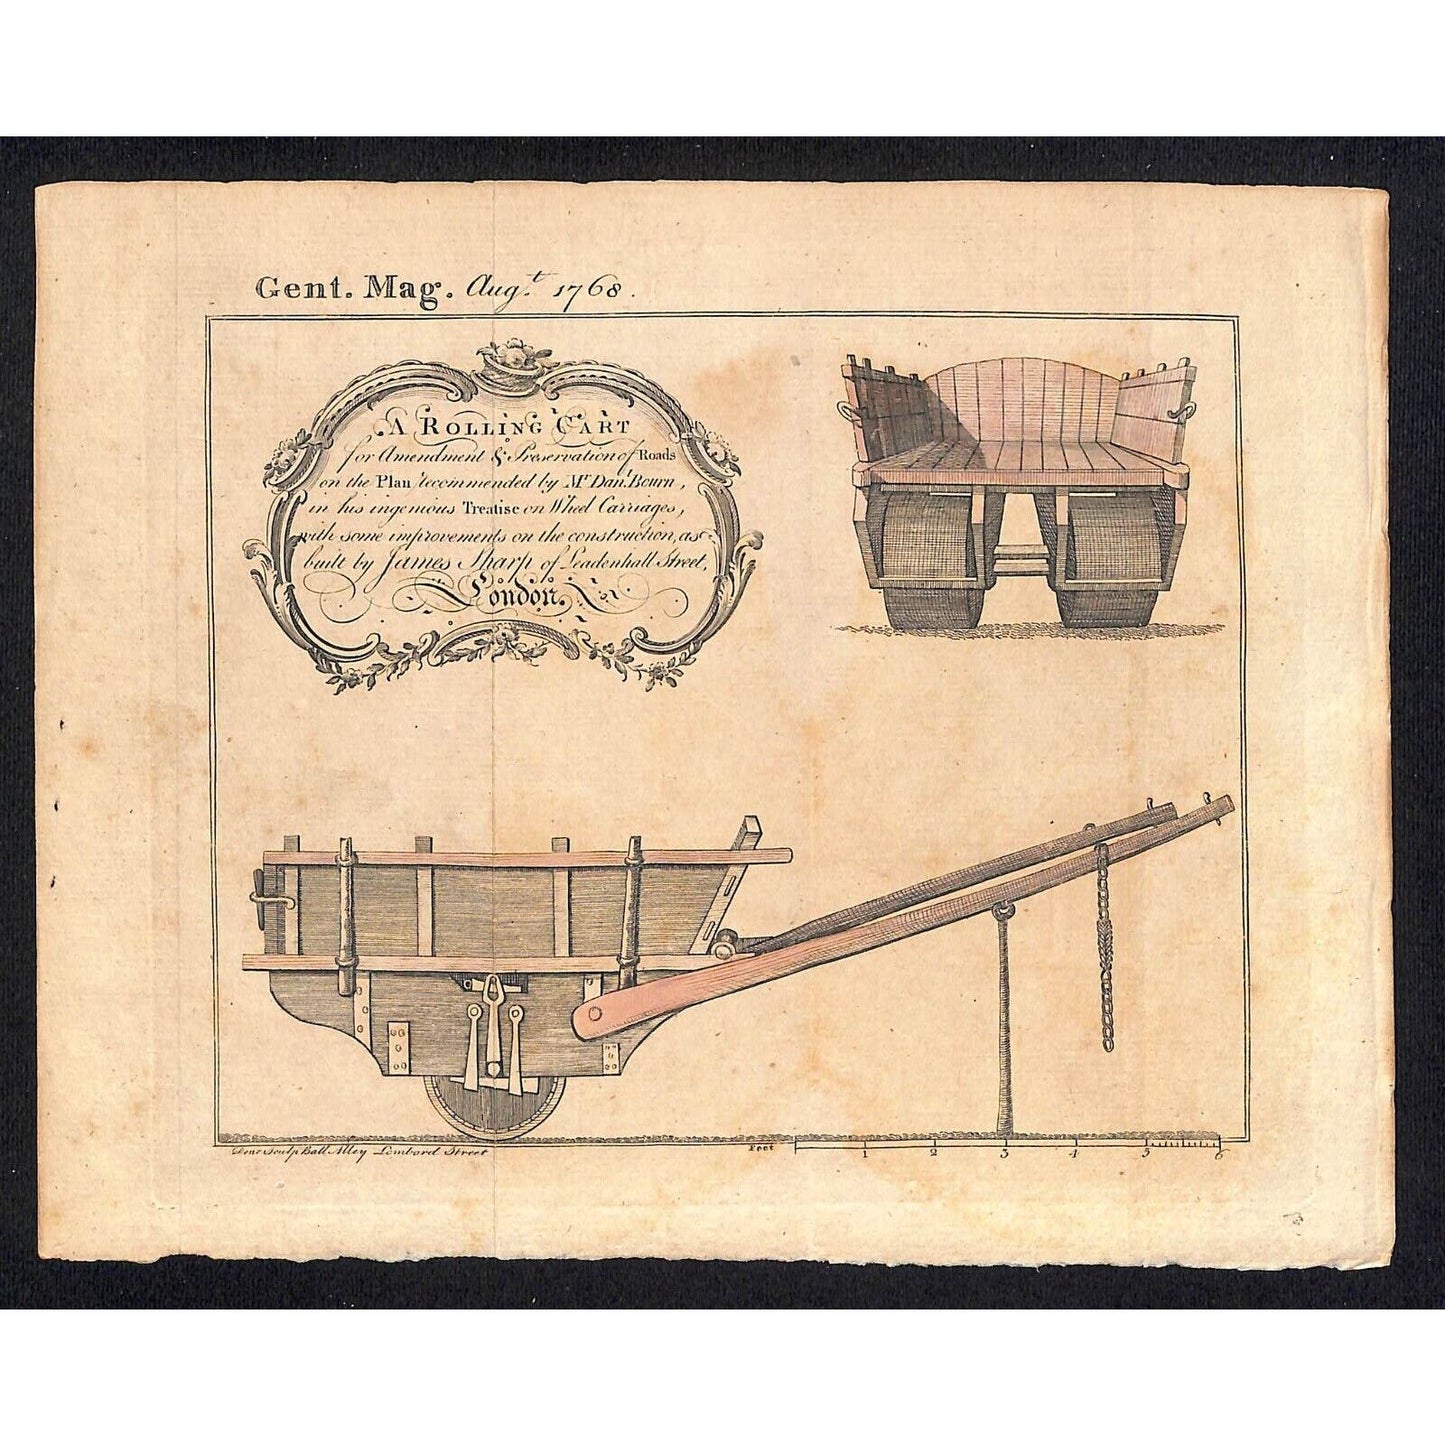 Gent. Mag. Aug.t 1768.
A ROLLING CART
for Amendment & Preservation of Roads
on the Plan recommended by Mr Danl. Bourn,
in his ingenious Treatise on Wheel Carriages,
with some improvements on the construction, as
built by James Sharp of Leadenhall Street,
London.
Dent Sculp Ball Alley Lombard Street
Feet 1 2 3 4 5 6